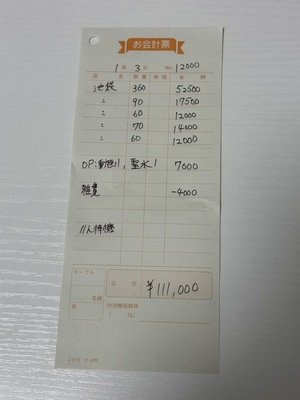 お会計票
1月3日 No.12000
品名 数量 単価 金額
池袋 360 52500
〃 90 17500
〃 60 12000
〃 70 14000
〃 60 12000
OP: 1, 聖水1 7000
雑費 -4000
11人待機
テーブル
名様
係
合計 ¥111,000
内消費税額等
( %)